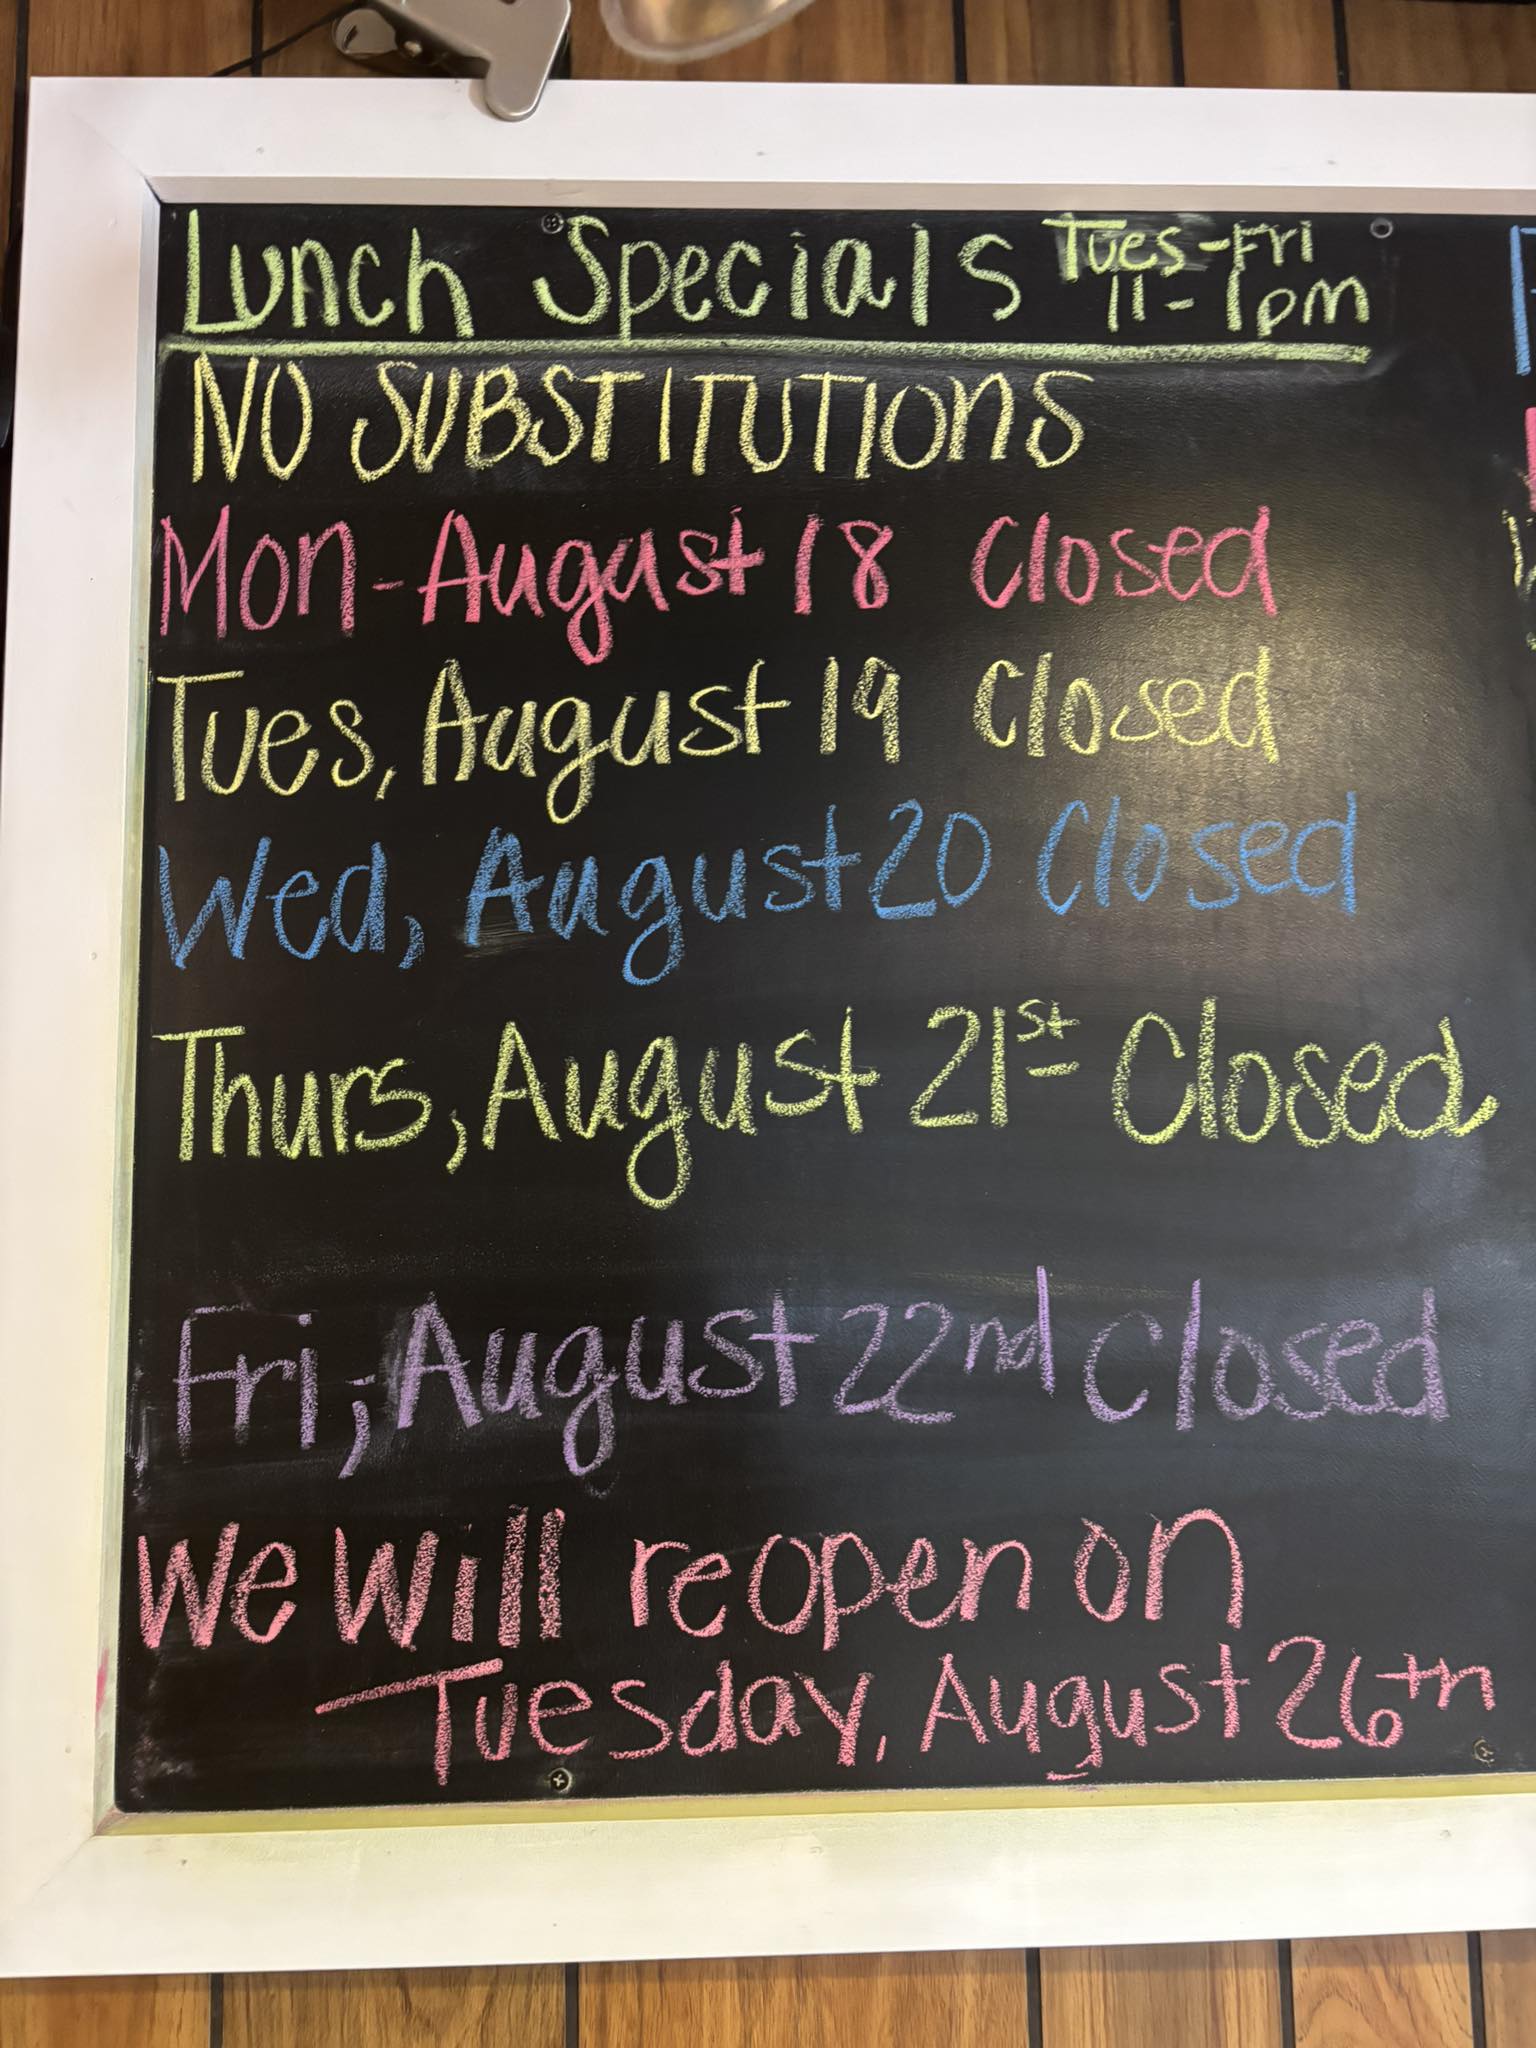 Lunch Specials Tues-Fri
11-1pm
NO SUBSTITUTIONS
Mon-August 18 Closed
Tues, August 19 Closed
Wed, August 20 Closed
Thurs, August 21st Closed
Fri, August 22nd Closed
We will reopen on
Tuesday, August 26th